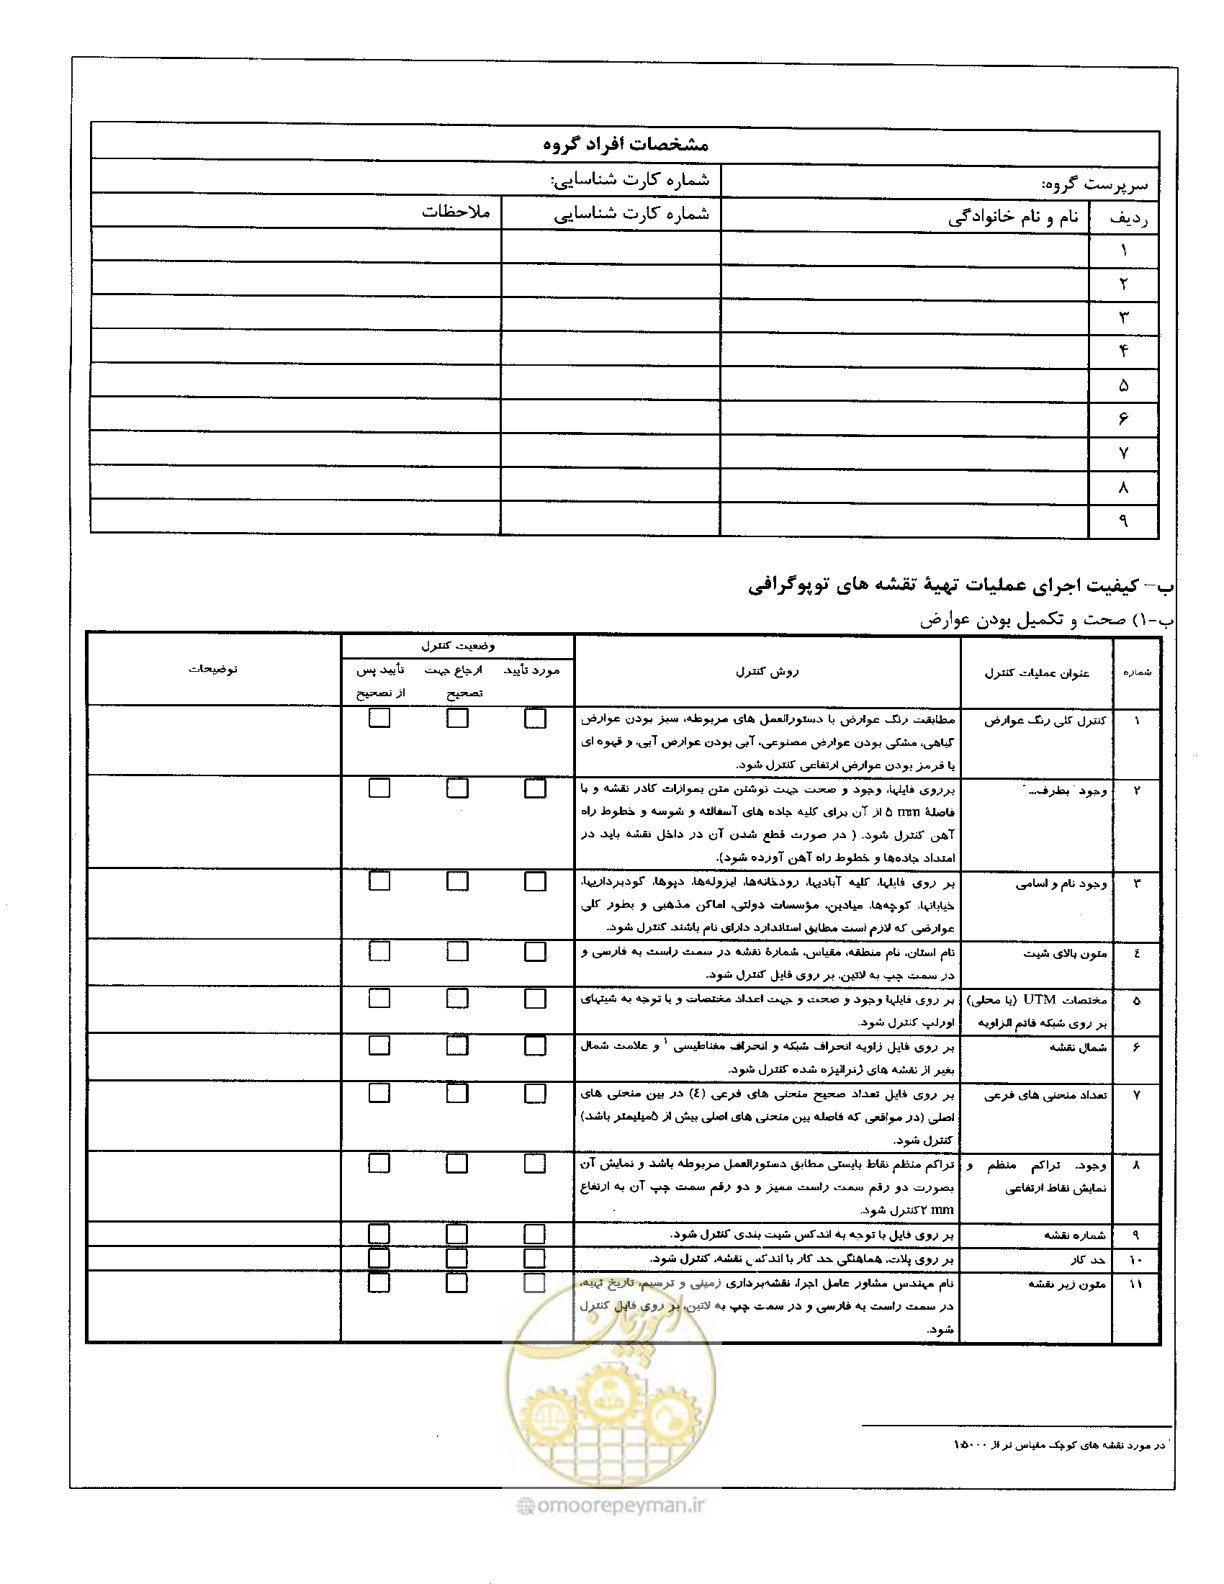 مشخصات افراد گروه
سرپرست گروه:
شماره کارت شناسایی:
ردیف
نام و نام خانوادگی
شماره کارت شناسایی
ملاحظات
۱
۲
۳
۴
۵
۶
۷
۸
۹
ب- کیفیت اجرای عملیات تهیهٔ نقشه های توپوگرافی
ب-۱) صحت و تکمیل بودن عوارض
شماره
عنوان عملیات کنترل
روش کنترل
وضعیت کنترل
توضیحات
مورد تأیید
ارجاع جهت
تصحیح
تأیید پس
از تصحیح
۱
کنترل کلی رنگ عوارض
مطابقت رنگ عوارض با دستورالعمل های مربوطه، سبز بودن عوارض
گیاهی، مشکی بودن عوارض مصنوعی، آبی بودن عوارض آبی، و قهوه ای
یا قرمز بودن عوارض ارتفاعی کنترل شود.
۲
وجود "بطرف..."
برروی فایلها، وجود و صحت جهت نوشتن متن بموازات کادر نقشه و با
فاصلهٔ ۵ mm از آن برای کلیه جاده های آسفالته و شوسه و خطوط راه
آهن کنترل شود. ( در صورت قطع شدن آن در داخل نقشه باید در
امتداد جاده‌ها و خطوط راه آهن آورده شود).
۳
وجود نام و اسامی
بر روی فایلها، کلیه آبادیها، رودخانه‌ها، ایزوله‌ها، دپوها، گودبرداریها،
خیابانها، کوچه‌ها، میادین، مؤسسات دولتی، اماکن مذهبی و بطور کلی
عوارضی که لازم است مطابق استاندارد دارای نام باشند، کنترل شود.
٤
متون بالای شیت
نام استان، نام منطقه، مقیاس، شمارهٔ نقشه در سمت راست به فارسی و
در سمت چپ به لاتین، بر روی فایل کنترل شود.
۵
مختصات UTM (یا محلی)
بر روی شبکه قائم الزاویه
بر روی فایلها وجود و صحت و جهت اعداد مختصات و با توجه به شیتهای
اورلپ کنترل شود.
۶
شمال نقشه
بر روی فایل زاویه انحراف شبکه و انحراف مغناطیسی ۱ و علامت شمال
بغیر از نقشه های ژنرالیزه شده کنترل شود.
۷
تعداد منحنی های فرعی
بر روی فایل تعداد صحیح منحنی های فرعی (٤) در بین منحنی های
اصلی (در مواقعی که فاصله بین منحنی های اصلی بیش از ۵میلیمتر باشد)
کنترل شود.
۸
وجود، تراکم منظم و
نمایش نقاط ارتفاعی
تراکم منظم نقاط بایستی مطابق دستورالعمل مربوطه باشد و نمایش آن
بصورت دو رقم سمت راست ممیز و دو رقم سمت چپ آن به ارتفاع
۲ mm کنترل شود.
۹
شماره نقشه
بر روی فایل با توجه به اندکس شیت بندی کنترل شود.
۱۰
حد کار
بر روی پلات، هماهنگی حد کار با اندکس نقشه، کنترل شود.
۱۱
متون زیر نقشه
نام مهندس مشاور عامل اجرا، نقشه‌برداری زمینی و ترسیم، تاریخ تهیه،
در سمت راست به فارسی و در سمت چپ به لاتین، بر روی فایل کنترل
شود.
۱ در مورد نقشه های کوچک مقیاس تر از ۱:۵۰۰۰
امورپیمان
@omoorepeyman.ir